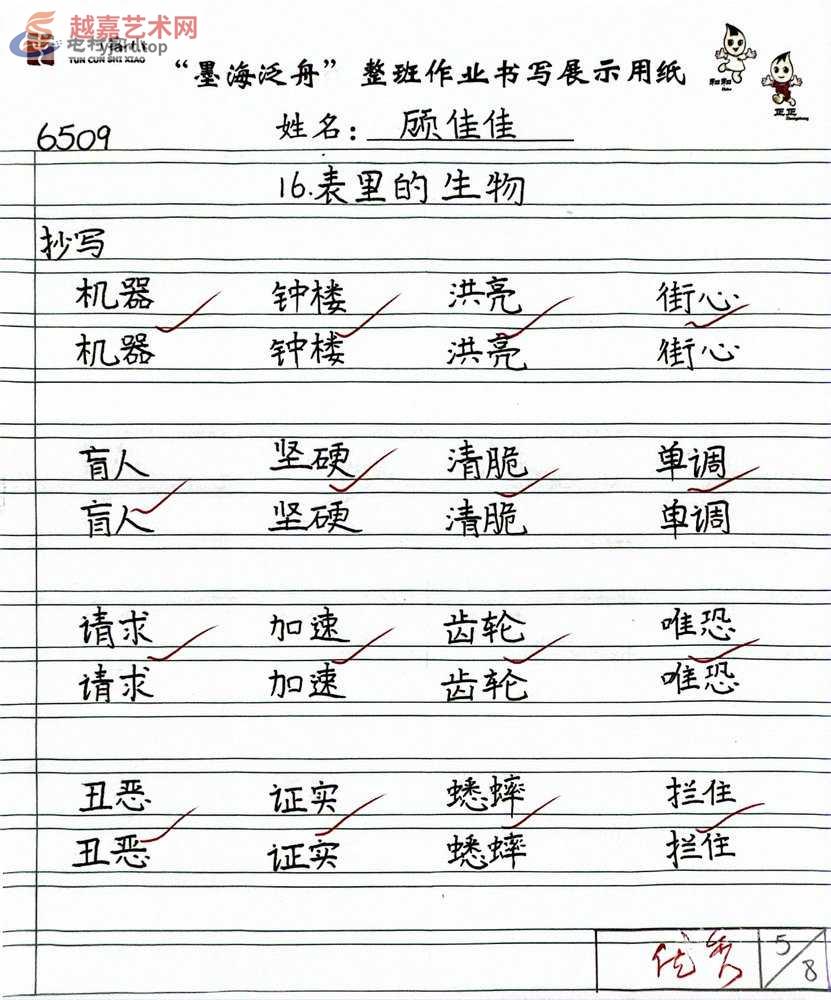 越嘉艺术网
yjart.top
TUN CUN SHI XIAO
“墨海泛舟”整班作业书写展示用纸
和和
正正
6509
姓名：顾佳佳
16.表里的生物
抄写
机器 钟楼 洪亮 街心
机器 钟楼 洪亮 街心
盲人 坚硬 清脆 单调
盲人 坚硬 清脆 单调
请求 加速 齿轮 唯恐
请求 加速 齿轮 唯恐
丑恶 证实 蟋蟀 拦住
丑恶 证实 蟋蟀 拦住
优秀 5/8